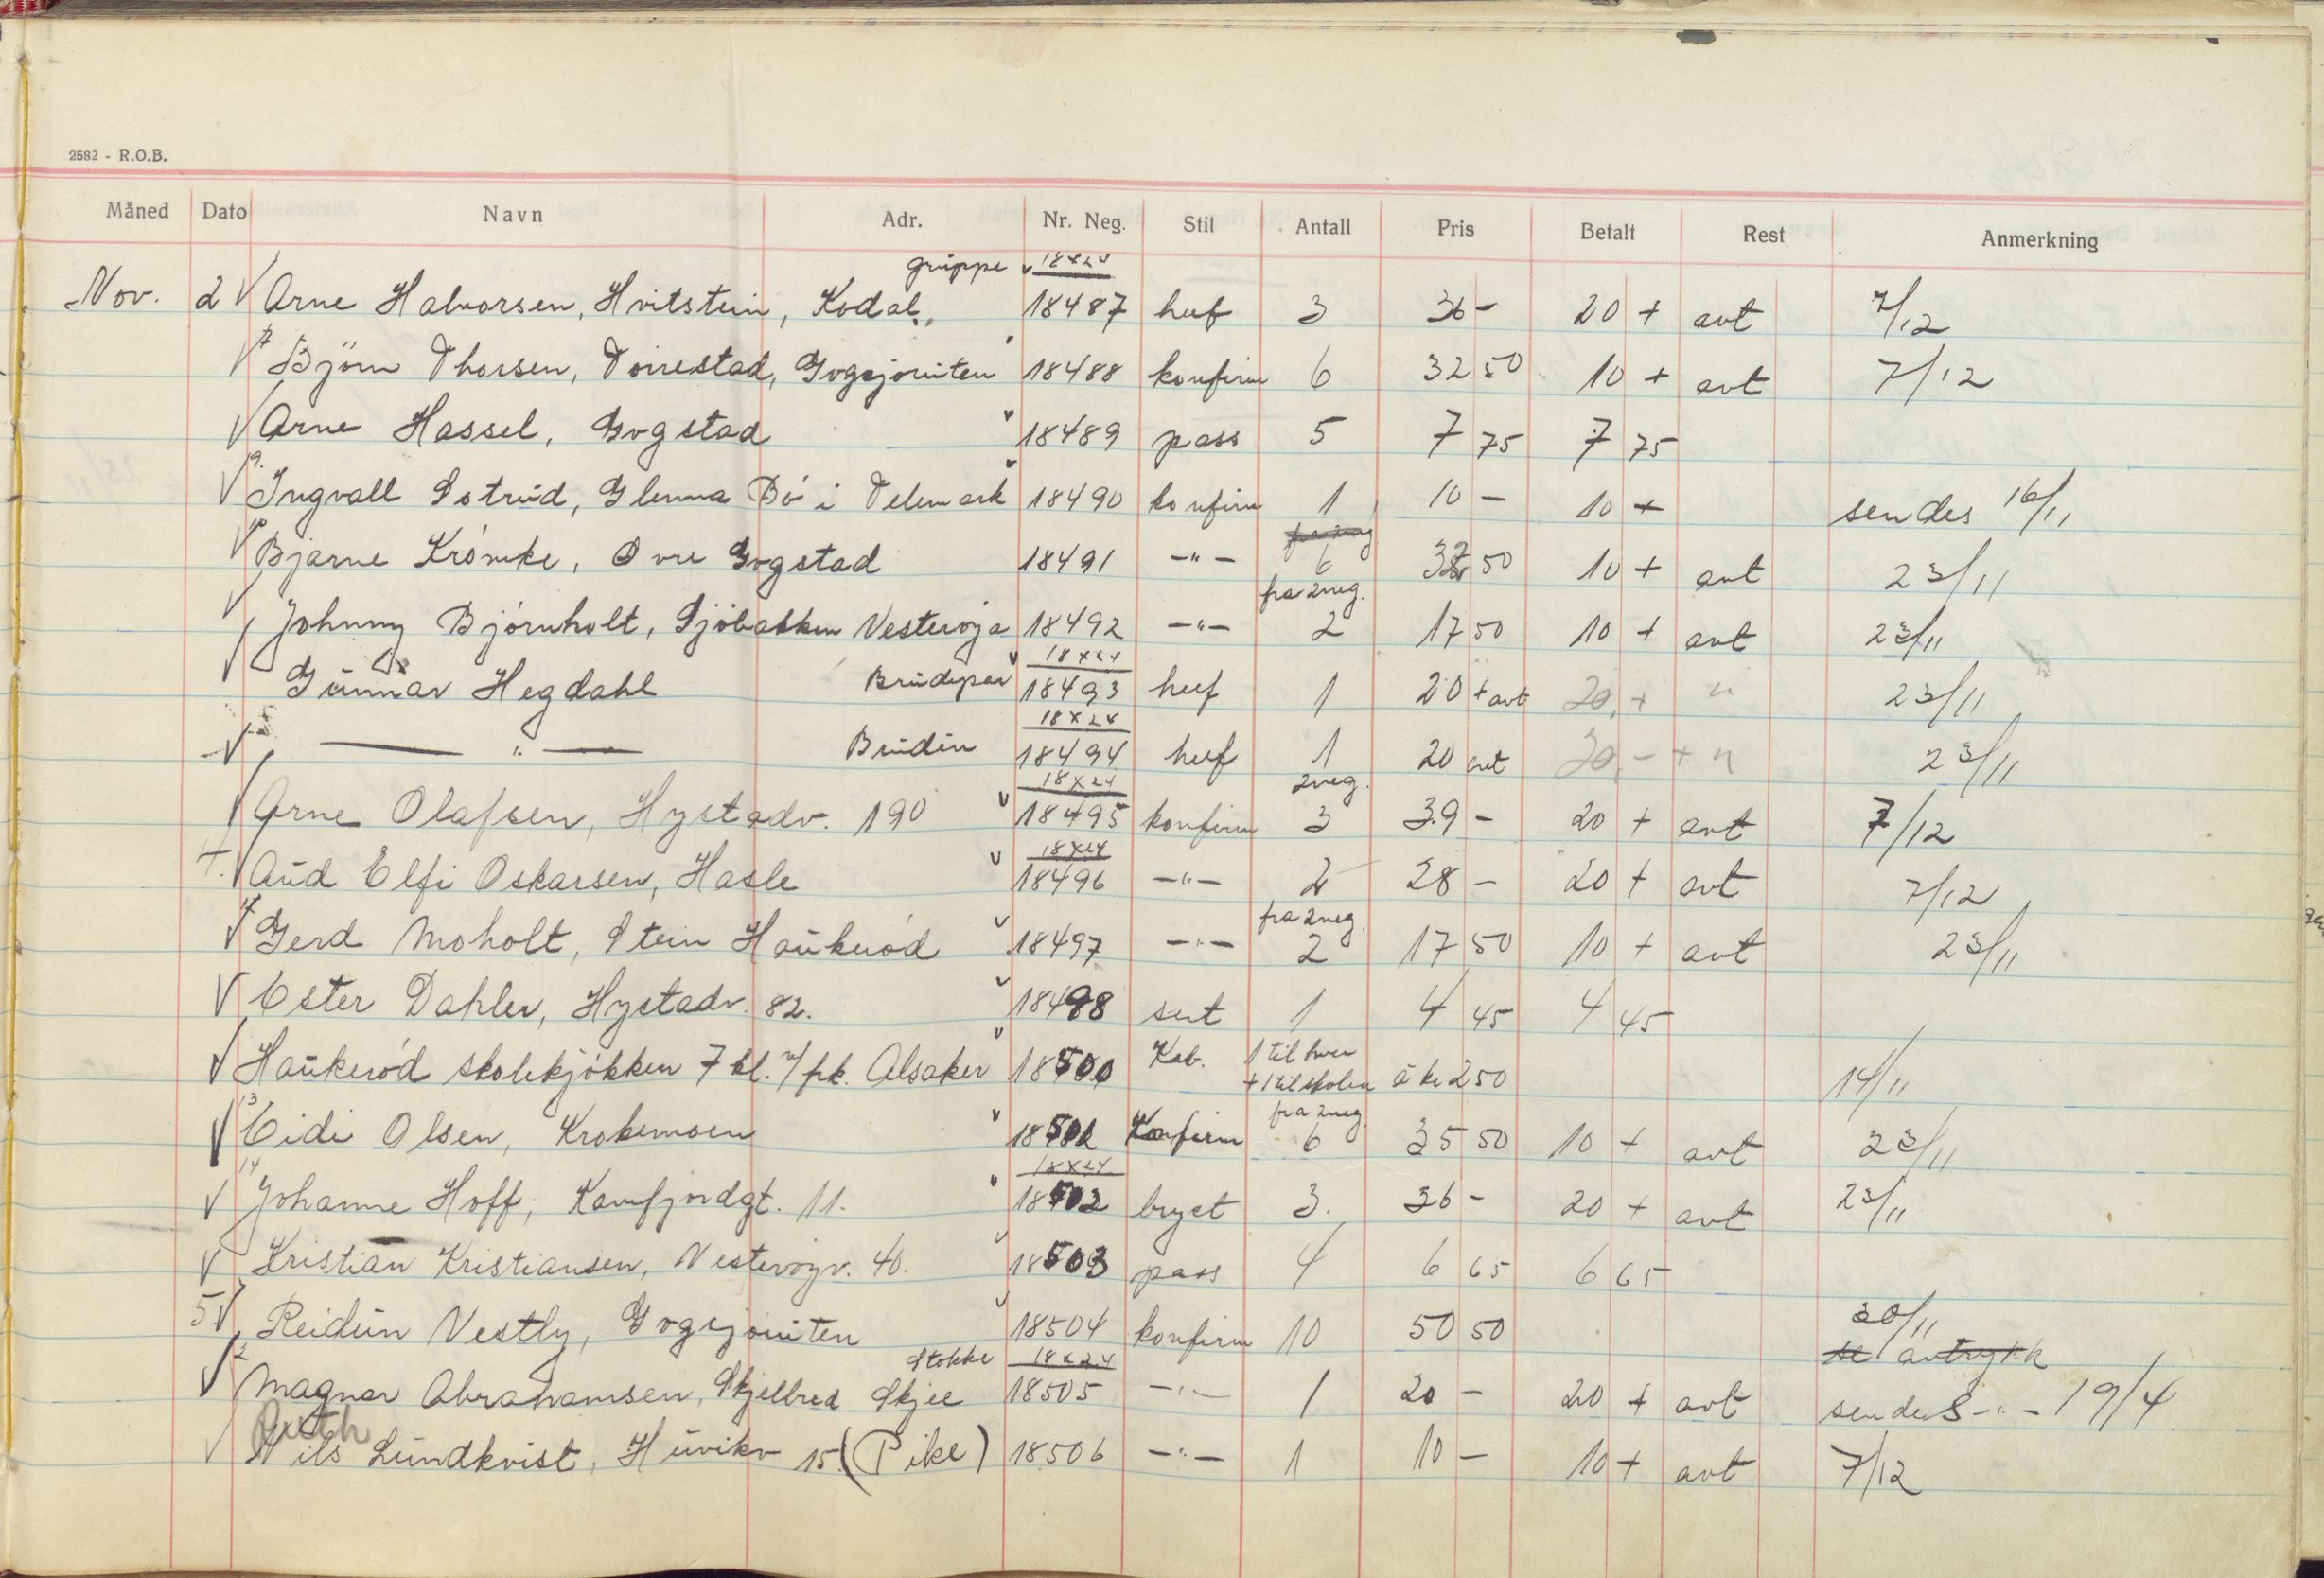 2582 - R.O.B.
Måned Dato Navn Adr. Nr. Neg. Stil Antall Pris Betalt Rest Anmerkning
gruppe 18x24
Nov. 2 Arne Halvorsen, Hvitstein, Kodal. 18487 huf 3 36 - 20 + avt 7/12
Björn Thorsen, Torrestad, Gogsjordten 18488 konfirm 6 32 50 10 + avt 7/12
Arne Hassel, Gogstad 18489 pass 5 7 75 7 75
Ingvall Sstrud, Glenna Bó i Telemark 18490 konfirm 1 10 - 10 + sendes 16/11
Bjarne Krómke, Ovre Gogstad 18491 -"- 6 50 10 + avt 23/11
fra 2 neg.
Johnny Bjórnholt, Sjöbakken Vesterøya 18492 -"- 2 17 50 10 + avt 23/11
18x24
Gunnar Hegdahl Brudepar 18493 huf 1 20 + avt 20,+ " 23/11
18x24
— " — Bruden 18494 huf 1 20 avt 20,- + " 23/11
18x24 2 neg.
Arne Olafsen, Hystadv. 190 18495 konfirm 3 39 - 20 + avt 7/12
18x24
Aud Elfi Oskarsen, Hasle 18496 -"- 2 28 - 20 + avt 7/12
fra 2 neg.
Gerd Moholt, Stein Haukeród 18497 -"- 2 17 50 10 + avt 23/11
Ester Dahler, Hystadv. 82. 18498 sert 1 4 45 4 45
Haukeród skolekjókken 7 kl. v/frk. Alsaker 18500 Kab. 1 til hver
+ 1 til skolen á kr 2 50 14/11
fra 2 neg.
Eidi Olsen, Krokemoen Konfirm 6 35 50 10 + avt 23/11
18x24
Johanne Hoff, Kamfjordgt. 11. 18502 bryst 3. 36 - 20 + avt 23/11
Kristian Kristiansen, Vesterøyv. 40. 18503 pass 4 6 65 6 65
5 Reidun Vestly, Gogsjordten 18504 konfirm 10 50 50 30/11
Stokke 18x24 se avtrykk
Magnar Abrahamsen, Skjelbred Skjee 18505 -"- 1 20 - 20 + avt sendes -"- 19/4
Ruth
Nils Lundkvist, Huvikv 15. (Pike) 18506 -"- 1 10 - 10 + avt 7/12